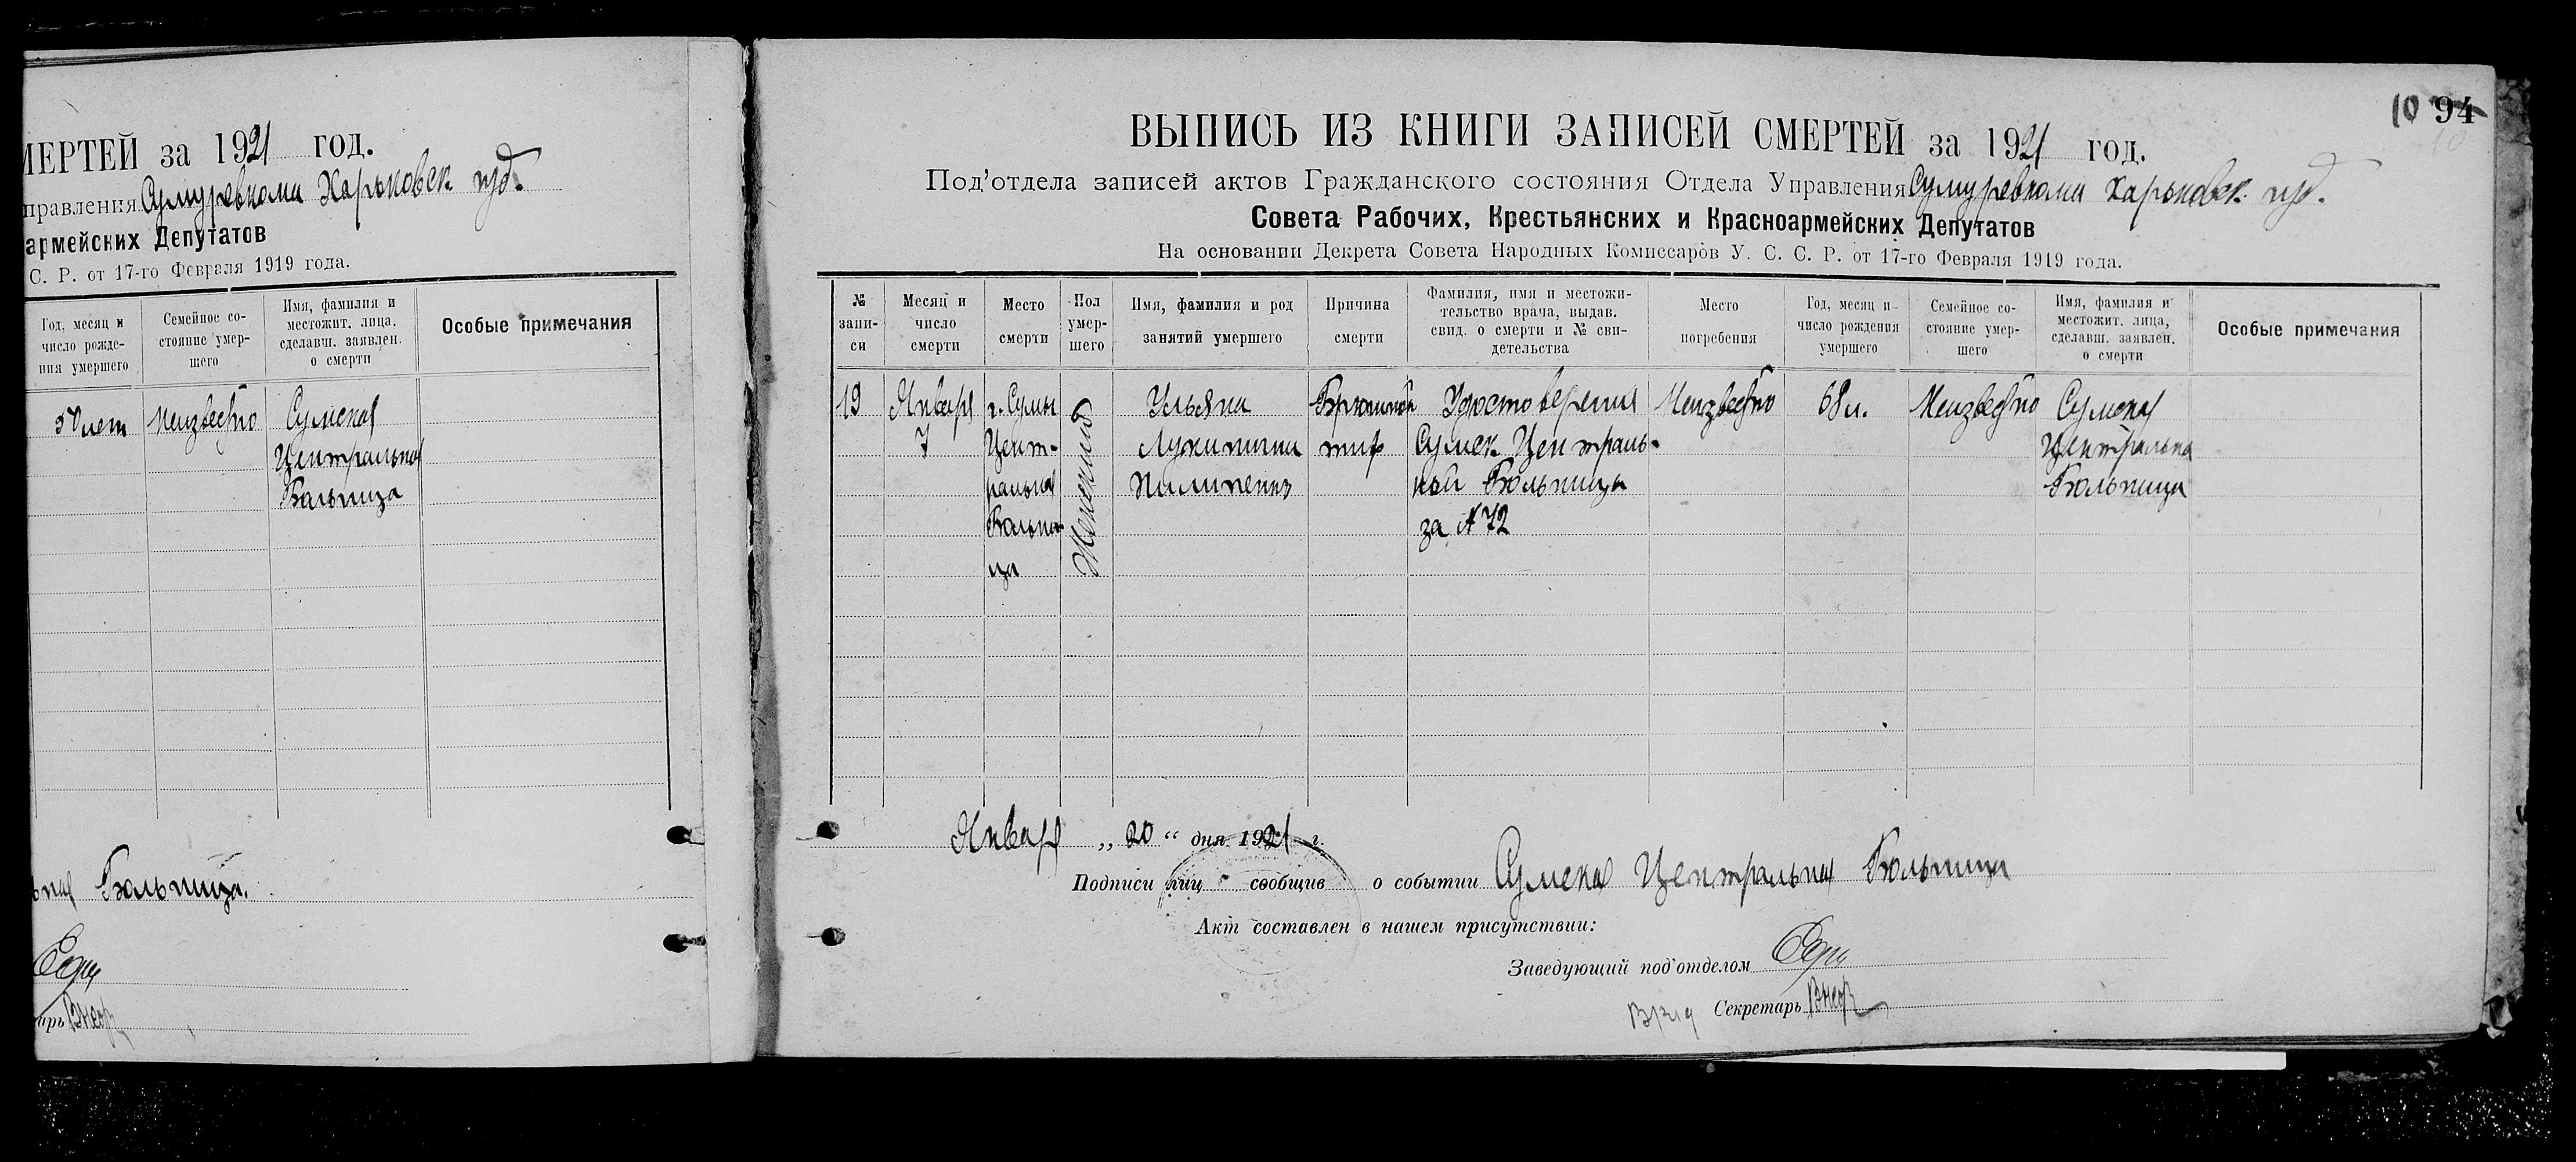 МЕРТЕЙ за 1921 год.
правления Сумуревкома Харьковск. губ.
армейских Депутатов
С. Р. от 17-го Февраля 1919 года.
Год, месяц и
число рожде-
ния умершего
Семейное со-
стояние умер-
шего
Имя, фамилия и
местожит. лица,
сделавш. заявлен.
о смерти
Особые примечания
50 лет
Неизвестно
Сумская
Центральная
Больница
ьная Больница.
арь
10 94
ВЫПИСЬ ИЗ КНИГИ ЗАПИСЕЙ СМЕРТЕЙ за 1921 год.
Под'отдела записей актов Гражданского состояния Отдела Управления Сумуревкома Харьковск. губ.
Совета Рабочих, Крестьянских и Красноармейских Депутатов
На основании Декрета Совета Народных Комиссаров У. С. С. Р. от 17-го Февраля 1919 года.
№
запи-
си
Месяц и
число
смерти
Место
смерти
Пол
умер-
шего
Имя, фамилия и род
занятий умершего
Причина
смерти
Фамилия, имя и местожи-
тельство врача, выдав.
свид. о смерти и № сви-
детельства
Место
погребения
Год, месяц и
число рождения
умершего
Семейное со-
стояние умер-
шего
Имя, фамилия и
местожит. лица,
сделавш. заявлен.
о смерти
Особые примечания
19
Январь
7
г. Сумы
Цент-
ральная
Больни-
ца
Женский
Ульяна
Лукинична
Пилипенко
Брюшной
тиф
Удостоверения
Сумск. Централь-
ной Больницы
за № 72
Неизвестно
68 л.
Неизвестно
Сумская
Центральна
Больница
Январь „ 20 “ дня 1921 г.
Подписи лиц сообщив о событии Сумская Центральная Больница
Акт составлен в нашем присутствии:
Заведующий под'отделом
Врид Секретарь